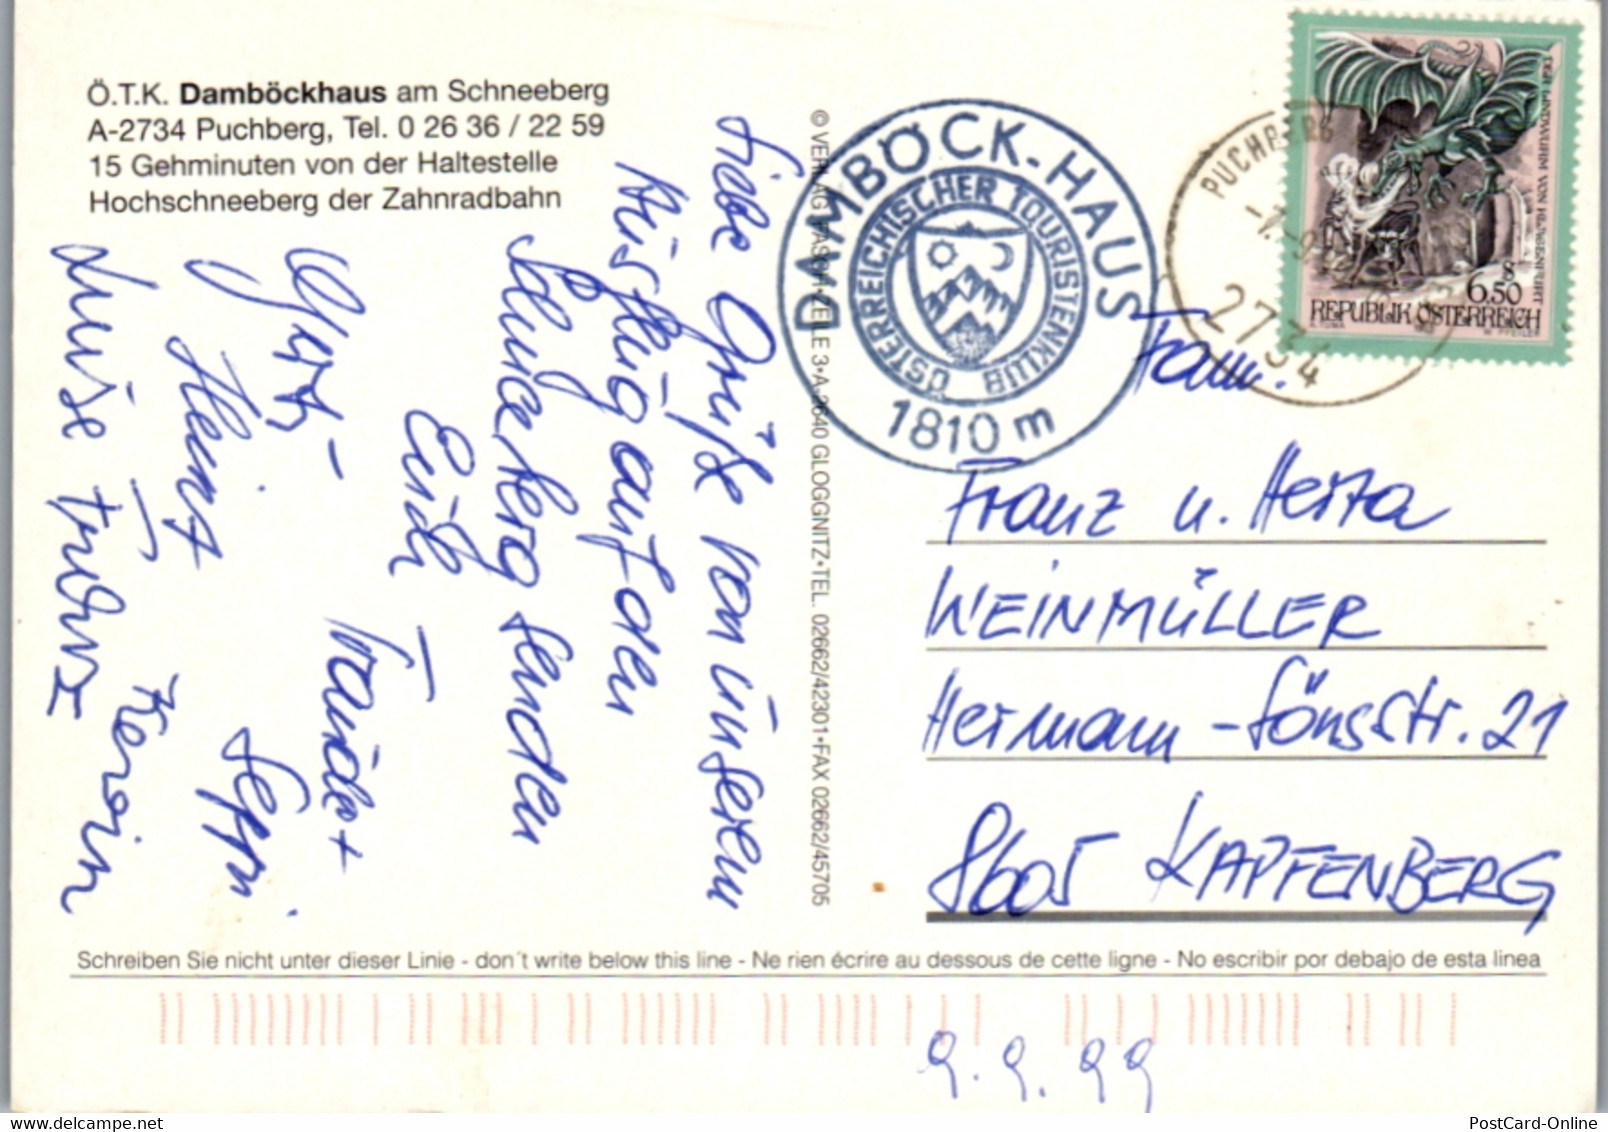 Ö.T.K. Damböckhaus am Schneeberg
A-2734 Puchberg, Tel. 0 26 36 / 22 59
15 Gehminuten von der Haltestelle
Hochschneeberg der Zahnradbahn
Liebe Grüße von unserem
Ausflug auf den
Schneeberg senden
Euch
Traude +
Heinz
Seppi
Luise
Kevin
DAMBÖCK-HAUS
ÖSTERREICHISCHER TOURISTENKLUB
1810 m
PUCHBERG
2734
DER LINDWURM VON KLAGENFURT
S
6.50
REPUBLIK ÖSTERREICH
Fam.
Franz u. Herta
WEINMÜLLER
Hermann-Lönsstr. 21
8605 KAPFENBERG
TEL. 02662/42301•FAX 02662/45705
Schreiben Sie nicht unter dieser Linie - don´t write below this line - Ne rien écrire au dessous de cette ligne - No escribir por debajo de esta linea
9.9.99
PostCard-Online